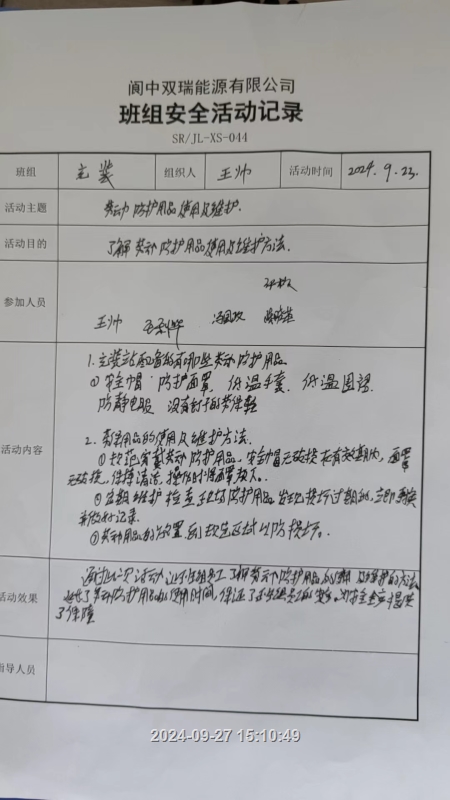 阆中双瑞能源有限公司
班组安全活动记录
SR/JL-XS-044
班组 主装 组织人 王帅 活动时间 2024.9.23.
活动主题 劳动防护用品使用及维护.
活动目的 了解劳动防护用品使用及维护方法.
参加人员
王帅
活动内容
1.主装站配备的有哪些劳动防护用品
①安全帽 防护面罩 低温手套 低温围裙
防静电服 没有钉子的劳保鞋
2.劳保用品的使用及维护方法.
①规范穿戴劳动防护用品.安全帽无破损在有效期内,面罩
无破损,保持清洁,操作时将面罩放下.
②定期维护检查 防护用品 发现损坏过期的,立即更换
并做好记录.
③ 用品的放置 区域以防损坏.
活动效果
通过此次活动让 组员工了解劳动防护用品的 及维护的方法
了劳动防护用品的使用时间,保证了 员工的安全,对安全生产提供
了保障
指导人员
2024-09-27 15:10:49